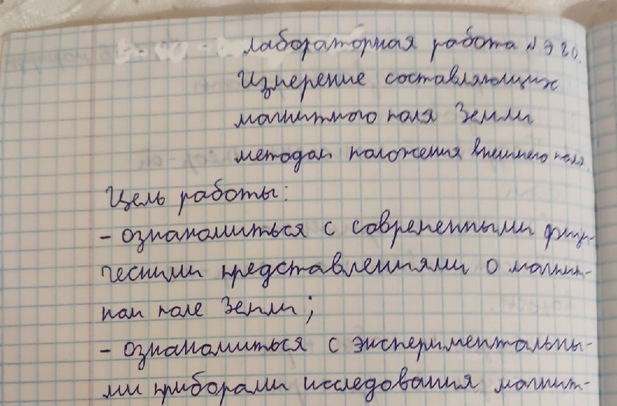 Лабораторная работа № Э 20.
Измерение составляющих
магнитного поля Земли
методом положения внешнего поля.
Цель работы:
- ознакомиться с современными физи-
ческими представлениями о магнит-
ном поле Земли;
- ознакомиться с экспериментальны-
ми приборами исследования магнит-